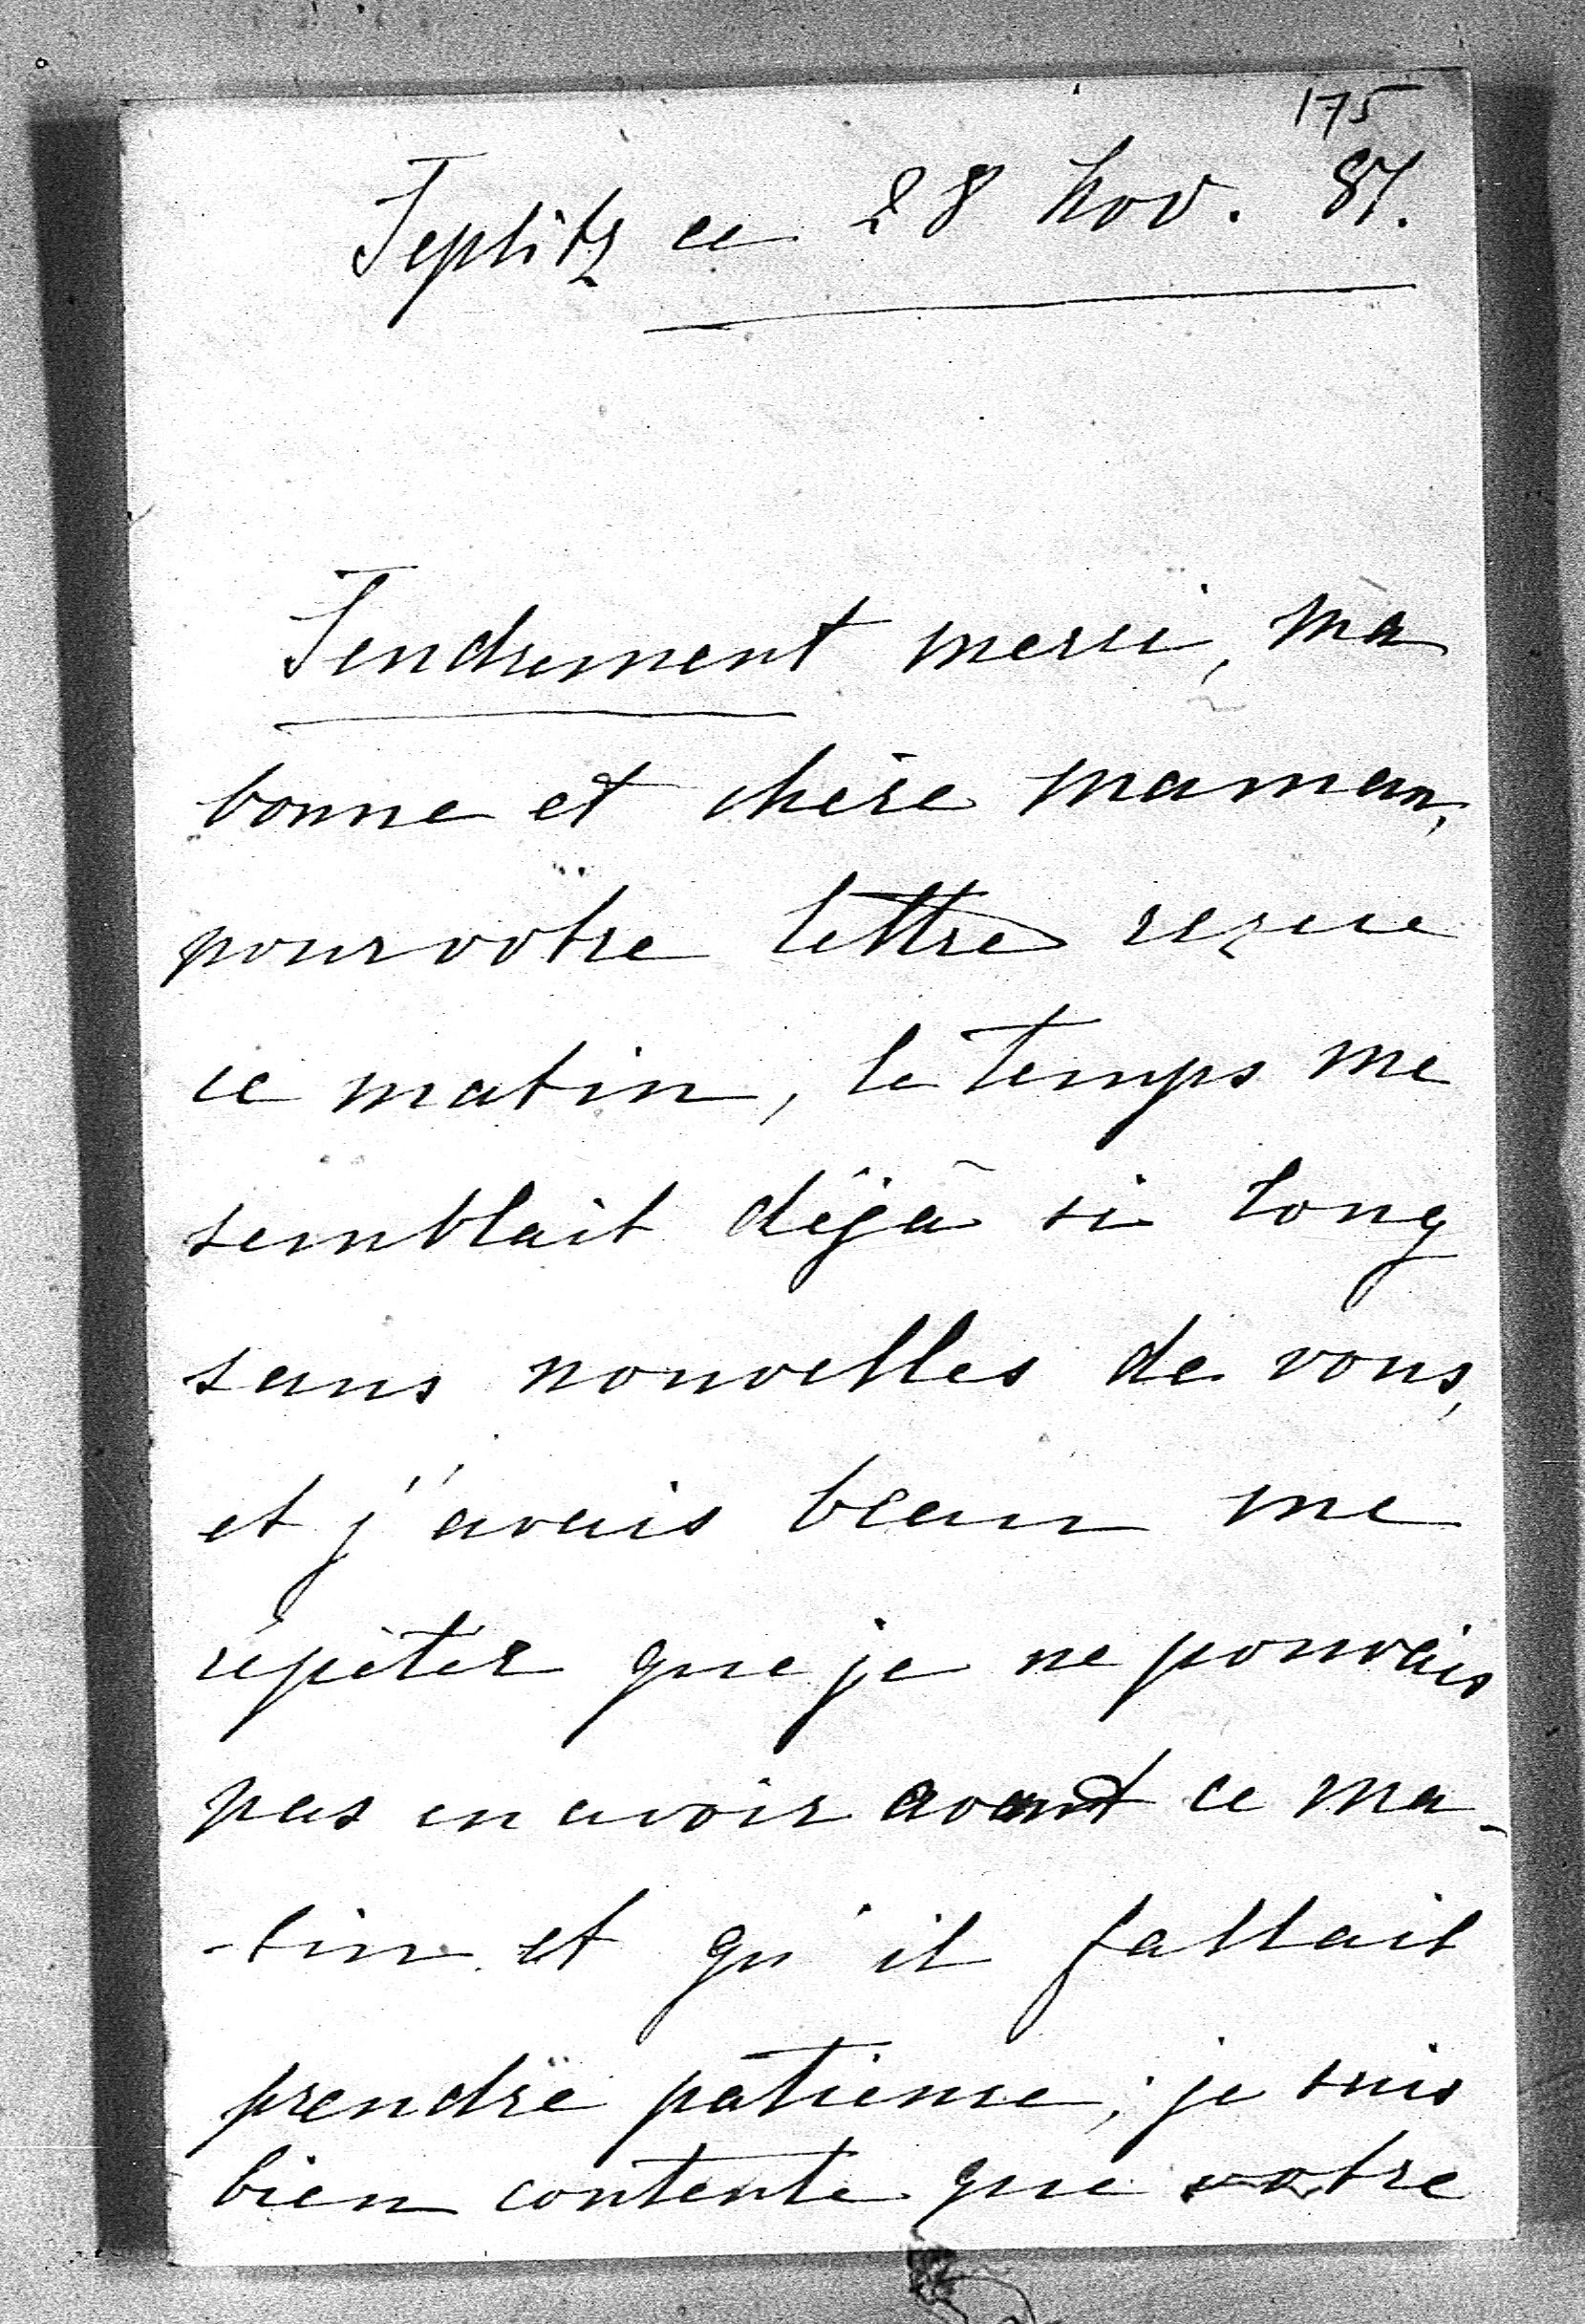 175
Teplitz ce 28 Nov. 87.
Tendrement merci, ma
bonne et chère maman,
pour votre lettre reçue
ce matin, le temps me
semblait déjà si long
sans nouvelles de vous,
et j'avais beau me
répéter que je ne pouvais
pas en avoir avant ce ma-
-tin et qu'il fallait
prendre patience; je suis
bien contente que votre